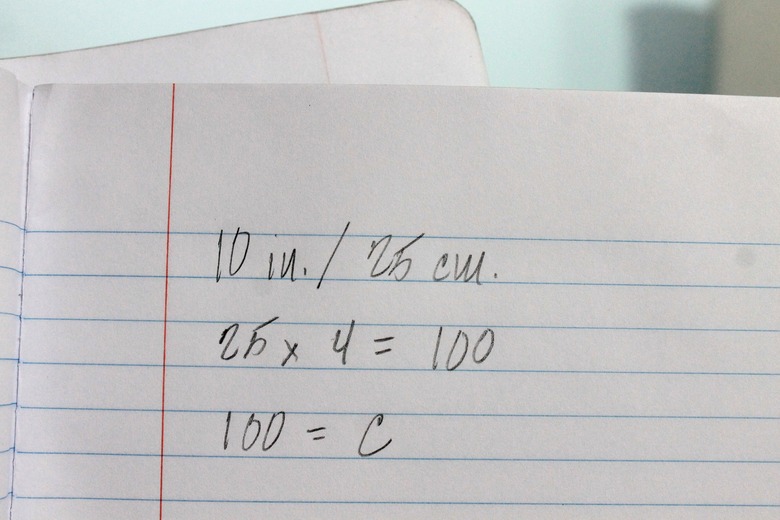 10 in. / 25 cm.
25 x 4 = 100
100 = C